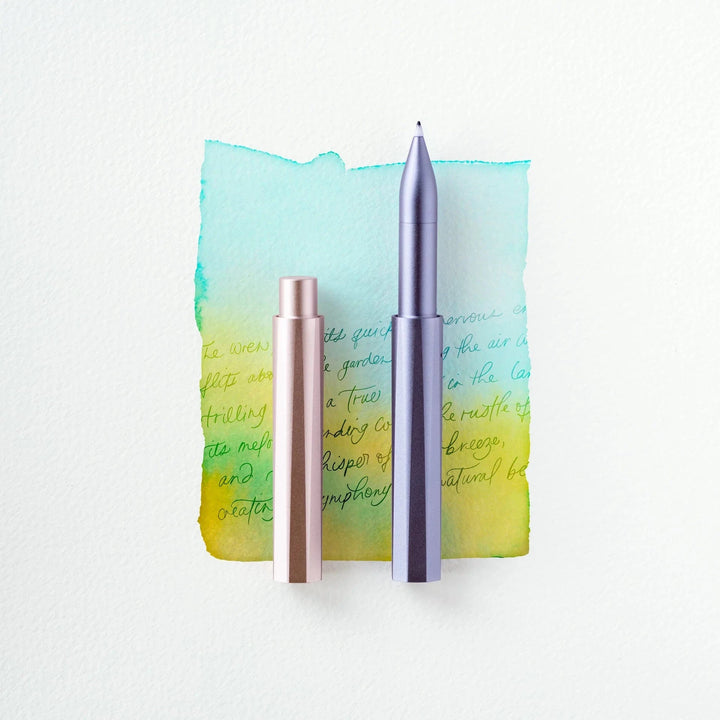 The wren, its quick nervous
flits abo garden the air
trilling a true in the lan
its melo nding co he rustle of
and hisper of breeze,
creating symphony natural be